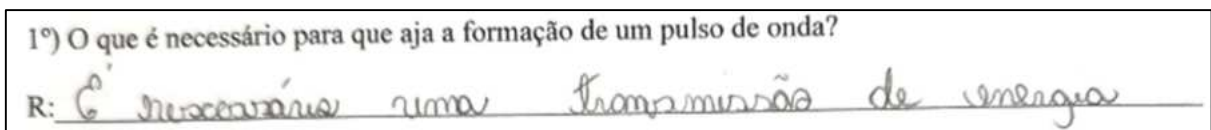 1º) O que é necessário para que aja a formação de um pulso de onda?
R: É nescessário uma transmissão de energia